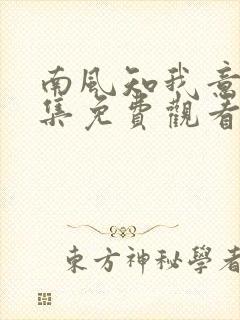 南風知我意
集免費觀看
東方神秘學者